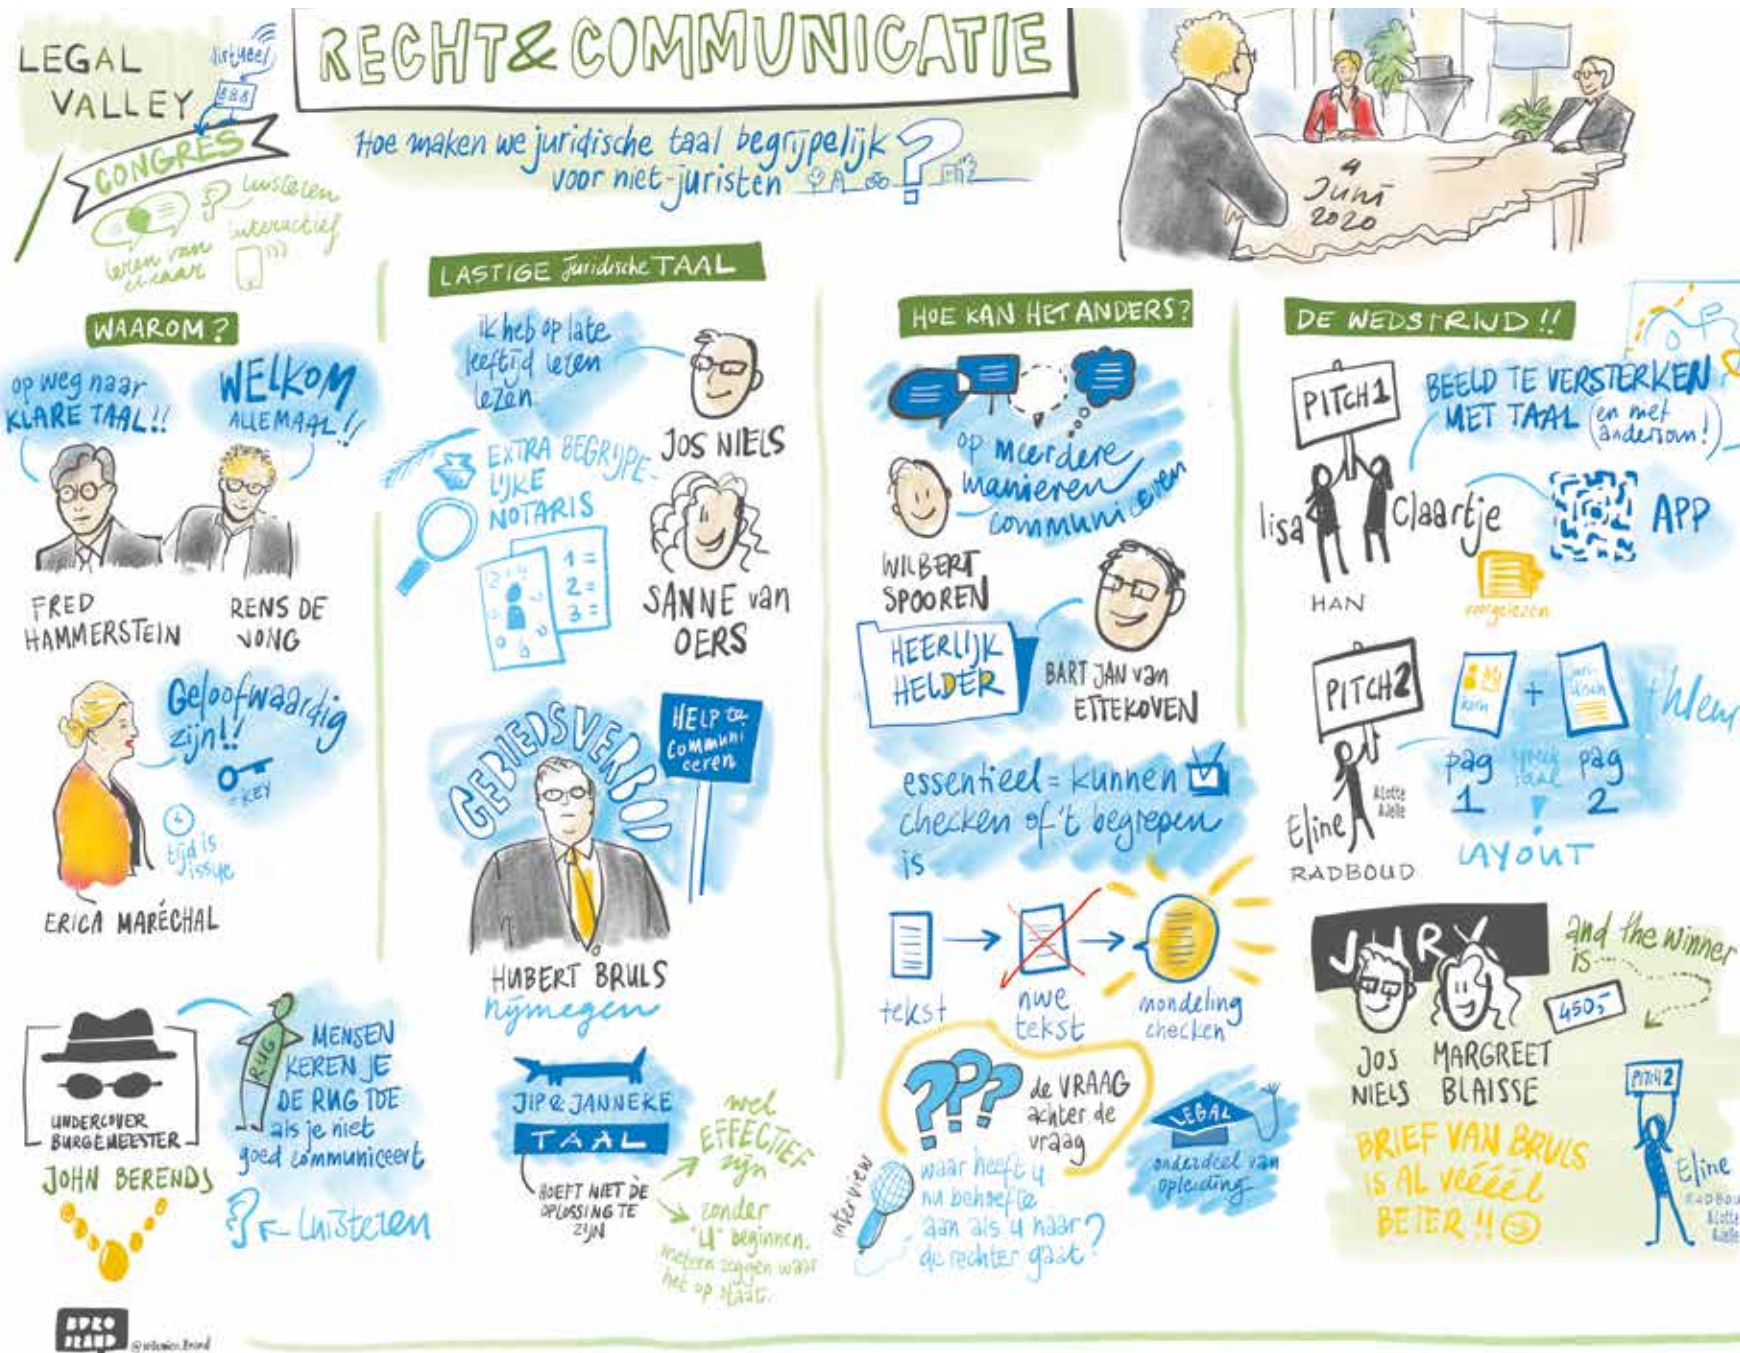 LEGAL
VALLEY
virtueel
CONGRES
luisteren
interactief
leren van
elkaar
RECHT & COMMUNICATIE
Hoe maken we juridische taal begrijpelijk
voor niet-juristen ?
4
Juni
2020
WAAROM?
op weg naar
KLARE TAAL!!
WELKOM
ALLEMAAL!!
FRED
HAMMERSTEIN
RENS DE
JONG
Geloofwaardig
zijn!!
= KEY
tijd is
issue
ERICA MARÉCHAL
UNDERCOVER
BURGEMEESTER
JOHN BERENDS
RUG
MENSEN
KEREN JE
DE RUG TOE
als je niet
goed communiceert
luisteren
LASTIGE Juridische TAAL
ik heb op late
leeftijd leren
lezen
JOS NIELS
EXTRA BEGRIJPE-
LIJKE
NOTARIS
1 =
2 =
3 =
SANNE van
OERS
GEBIEDSVERBOD
HELP te
communi
ceren
HUBERT BRULS
nijmegen
JIP & JANNEKE
TAAL
HOEFT NIET DÈ
OPLOSSING TE
ZIJN
wel
EFFECTIEF
zijn
zonder
"U" beginnen.
meteen zeggen waar
het op staat.
HOE KAN HET ANDERS?
op meerdere
manieren
communiceren
WILBERT
SPOOREN
HEERLIJK
HELDER
BART JAN van
ETTEKOVEN
essentieel = kunnen
checken of 't begrepen
is
tekst
nwe
tekst
mondeling
checken
???
de VRAAG
achter de
vraag
interview
waar heeft u
nu behoefte
aan als u naar
de rechter gaat?
LEGAL
onderdeel van
opleiding
DE WEDSTRIJD!!
PITCH 1
BEELD TE VERSTERKEN
MET TAAL (en met
andersom!)
lisa
Claartje
HAN
APP
voorgelezen
PITCH 2
kern
+
juri-
disch
+ kleur
pag
1
pag
2
LAYOUT
Eline
& Lotte
& Jelle
RADBOUD
JURY
and the winner
is
450,-
JOS
NIELS
MARGREET
BLAISSE
BRIEF VAN BRULS
IS AL véééél
BETER!!
PITCH 2
Eline
BURO
BRAND